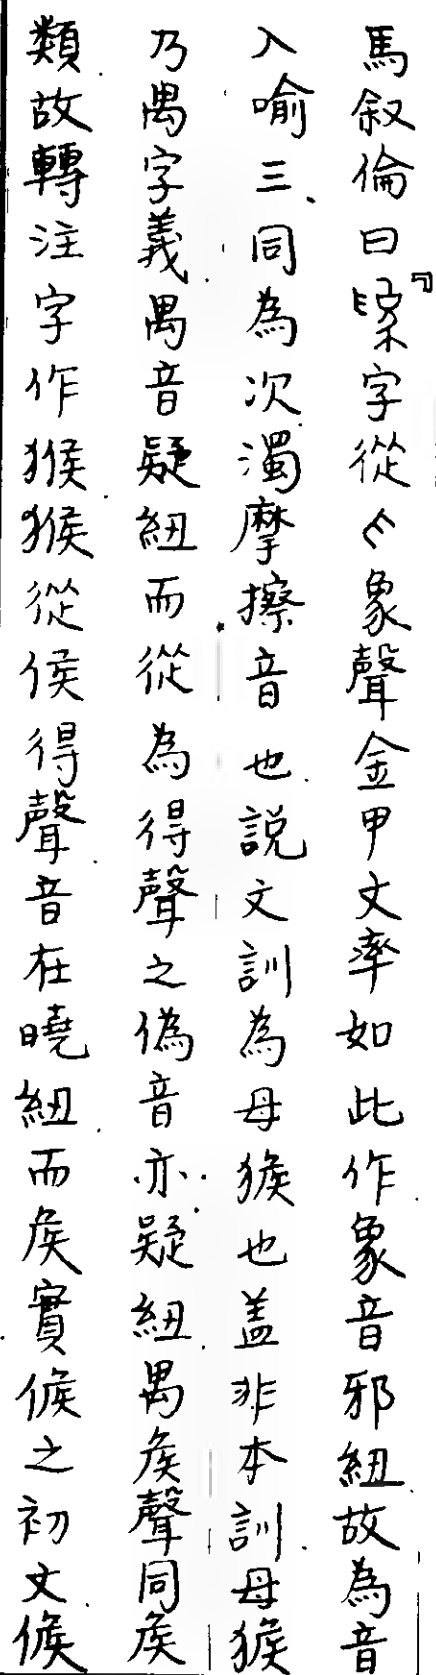 馬叙倫曰『字從爫象聲金甲文率如此作象音邪紐故為音
入喻三同為次濁摩擦音也説文訓為母猴也盖非本訓母猴
乃禺字義禺音疑紐而從為得聲之偽音亦疑紐禺矦聲同矦
類故轉注字作猴猴從侯得聲音在曉紐而矦實候之初文候